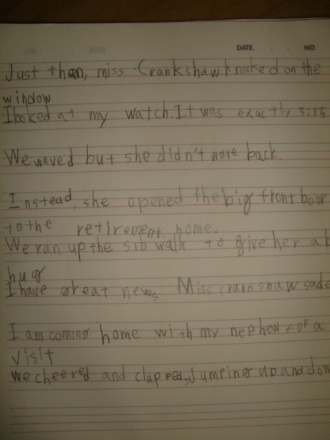 DATE NO.
Just then, miss Crankshaw knoked on the
window
I looked at my watch. It was exactly 3:15
We waved but she didn't wave back.
Instead, she opened the big front door
to the retirement home.
We ran up the sib walk to give her a b
hug
I have great news, Miss crankshaw sad
I am coming home with my nephew for a
visit
we cheered and claped, Jumping up and don